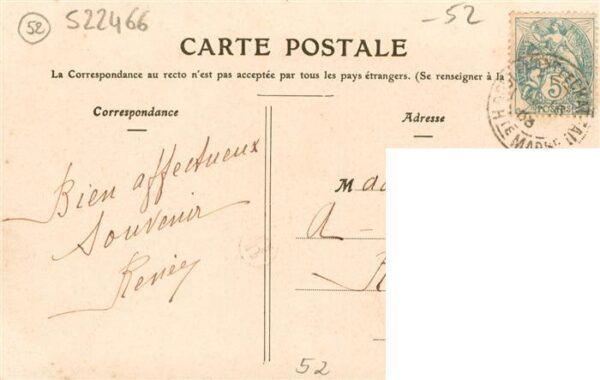 52
S22466
-52
CARTE POSTALE
La Correspondance au recto n'est pas acceptée par tous les pays étrangers. (Se renseigner à la
Correspondance
Adresse
5
Hte MARNE
Bien affectueux
Souvenir
Renée
Mad
A -
52